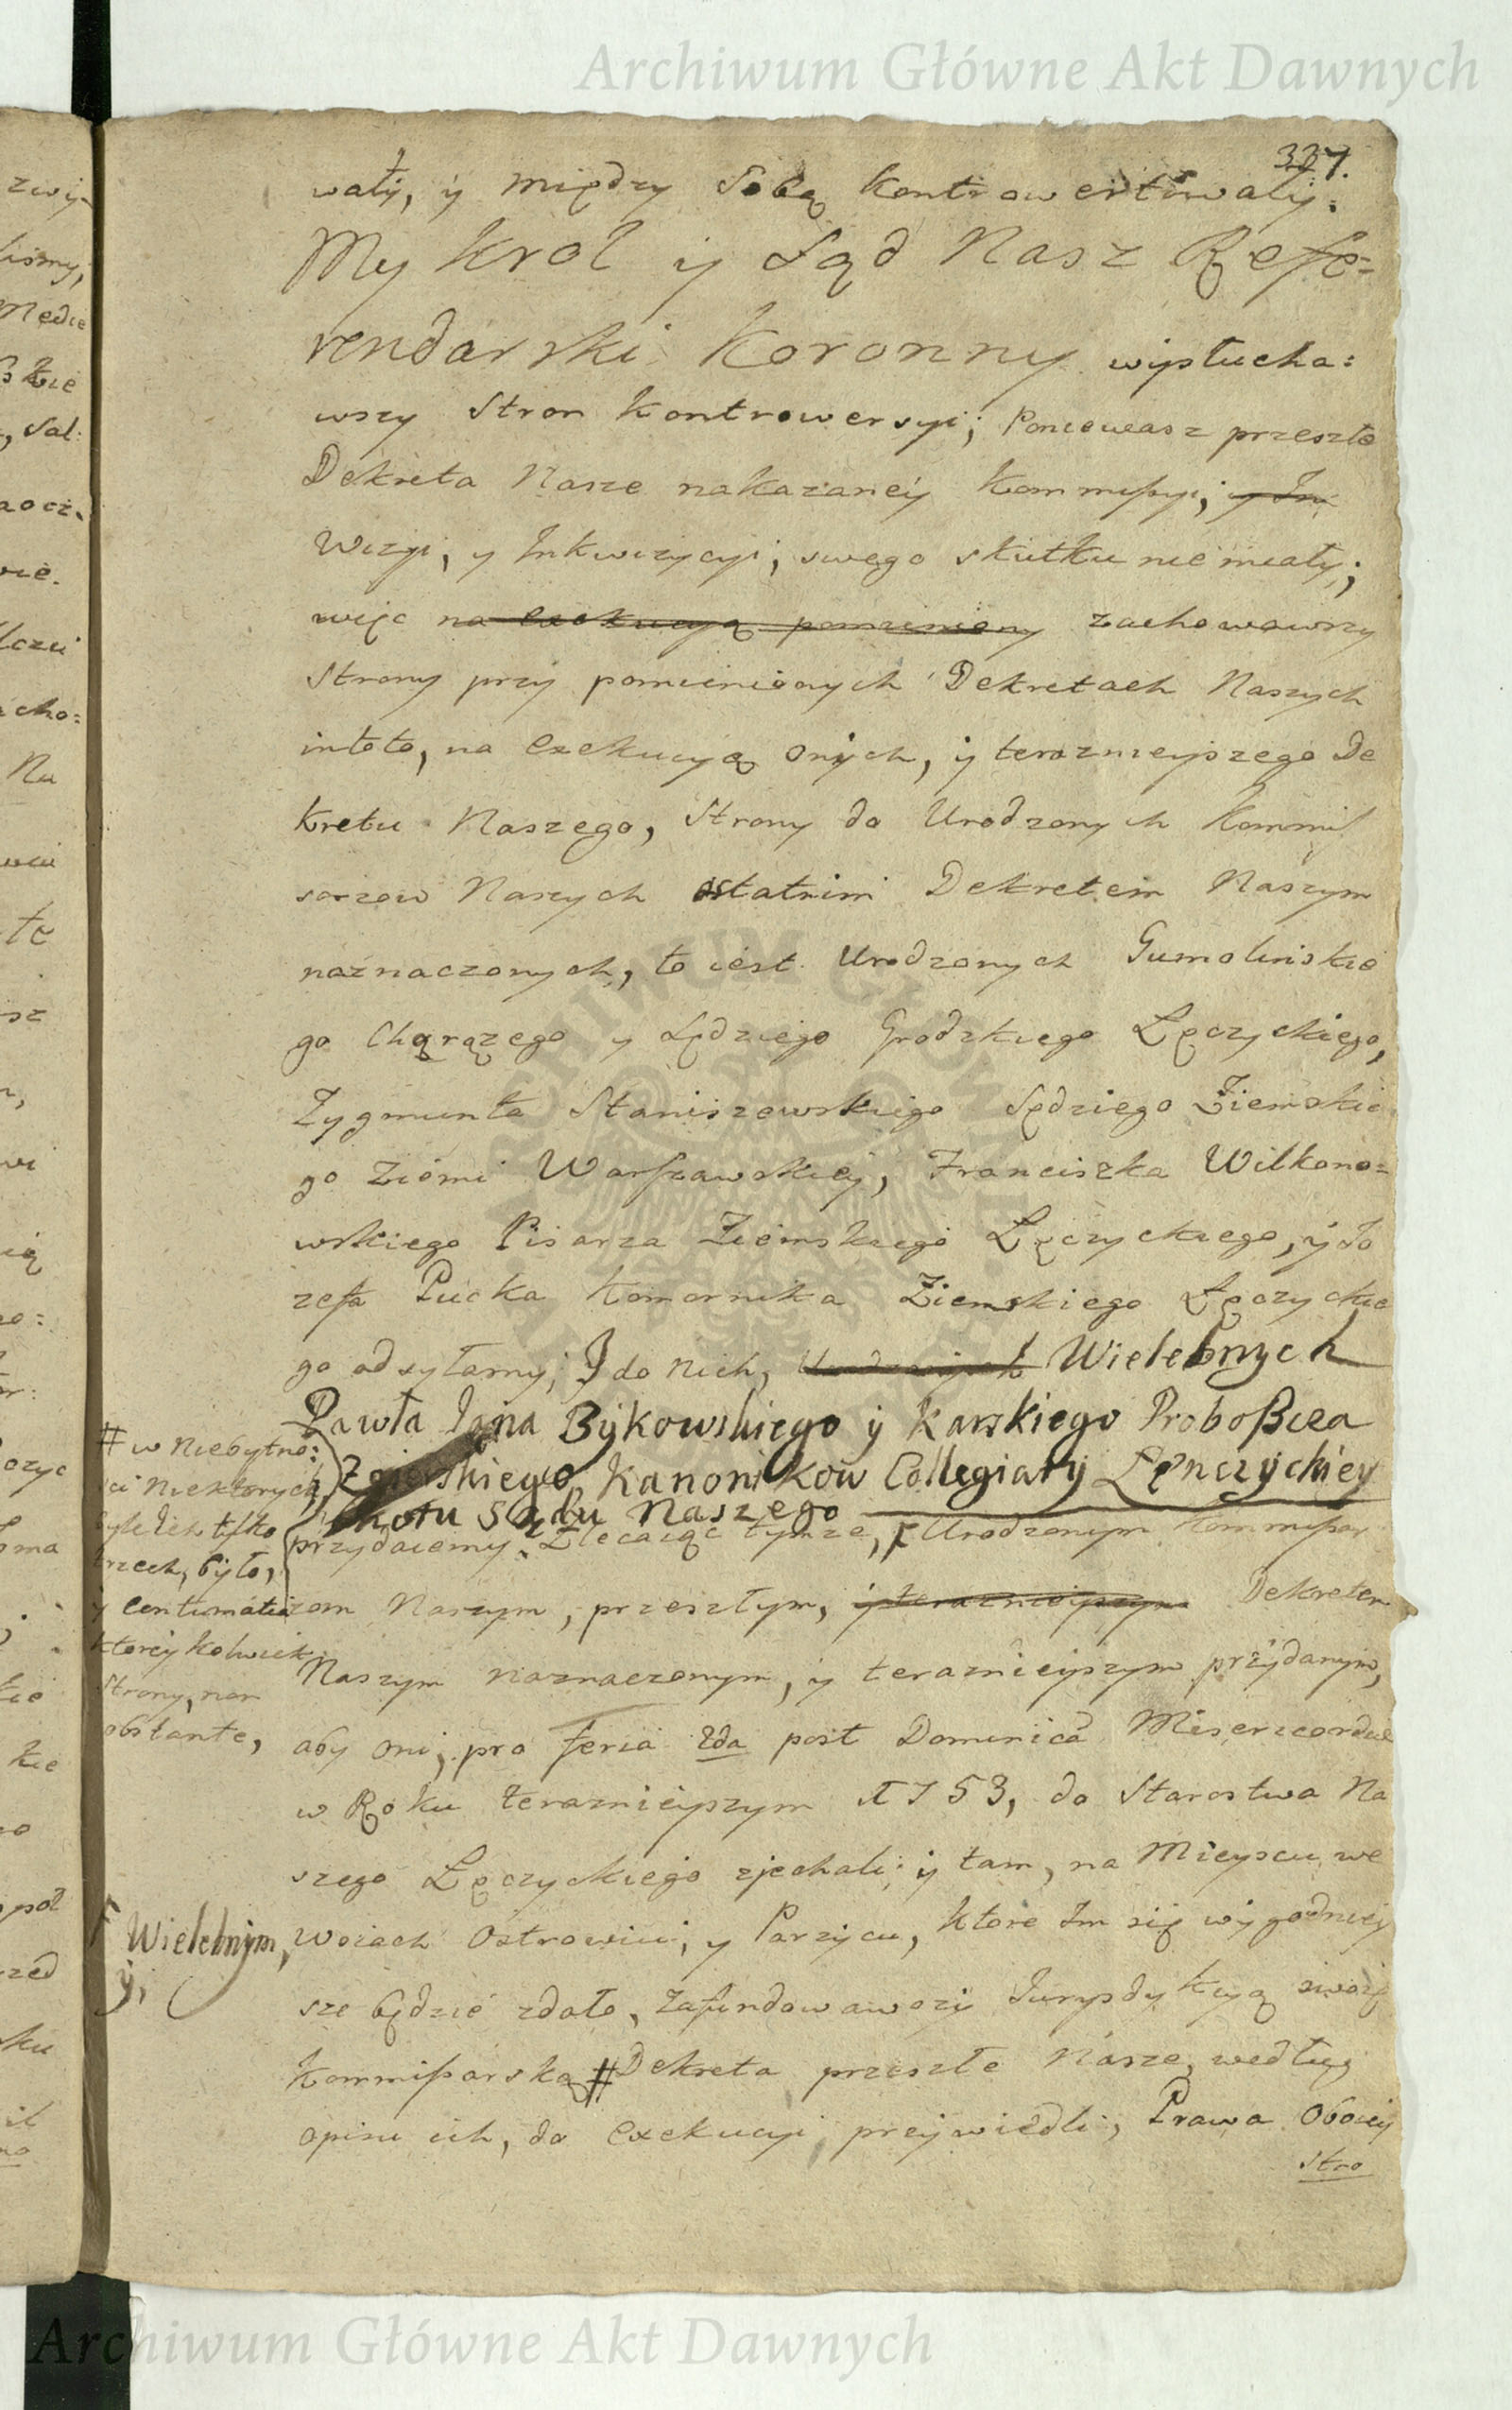 Archiwum Główne Akt Dawnych
327.
wały, y między Sobą kontrowertowały.
My Krol y Sąd Nasz Refe=
rendarski Koronny wysłucha=
wszy Stron kontrowersyi; Poniewasz przeszłe
Dekreta Nasze nakazaney Kommissyi, y In
Wizyi, y Inkwizycyi, swego skutku nie miały;
więc na exekucyą pomieniony zachowawszy
Strony przy pomienionych Dekretach Naszych
in toto, na exekucyą onych, y teraznieyszego De
kretu Naszego, Strony do Urodzonych Kommis
sarzow Naszych ostatnim Dekretem Naszym
naznaczonych, to iest Urodzonych Sumolinskie
go Chorążego y Sędziego Grodzkiego Łęczyckiego,
Zygmunta Staniszewskiego Sędziego Ziemskie
go Ziemi Warszawskiey, Franciszka Wilkono=
wskiego Pisarza Ziemskiego Łęczyckiego, y Jo
zefa Pucka Komornika Ziemskiego Łęczyckie
go odsyłamy; I do nich, Urodzonych Wielebnych
Pawła Jana Bykowskiego y Karskiego Proboszcza
Zgierskiego, Kanonikow Collegiaty Łęnczyckiey
Sądu Naszego
przydaiemy. Zlecaiąc tymże, Urodzonym Kommissar
zom Naszym, przeszłym, y teraznieyszym Dekretem
Naszym naznaczonym, y teraznieyszym przydanym,
aby oni, pro feria 2da post Dominicā Misericordiæ
w Roku teraznieyszym 1753, do Starostwa Na
szego Łęczyckiego zjechali; y tam, na Mieyscu, we
Wsiach Ostrowiu, y Parzycu, ktore Im się wygodniey
sze będzie zdało, zafundowawszy Jurysdykcyą swoię
Kommissarską # Dekreta przeszłe Nasze, według
opisu ich, do exekucyi przywiedli, Prawa Oboiey
Stro
# w niebytno:
sci niektorych,
byle ich tylko
trzech, było,
y contumatia
ktoreykolwiek
Strony, non
obstante,
Wielebnym,
y,
Archiwum Główne Akt Dawnych